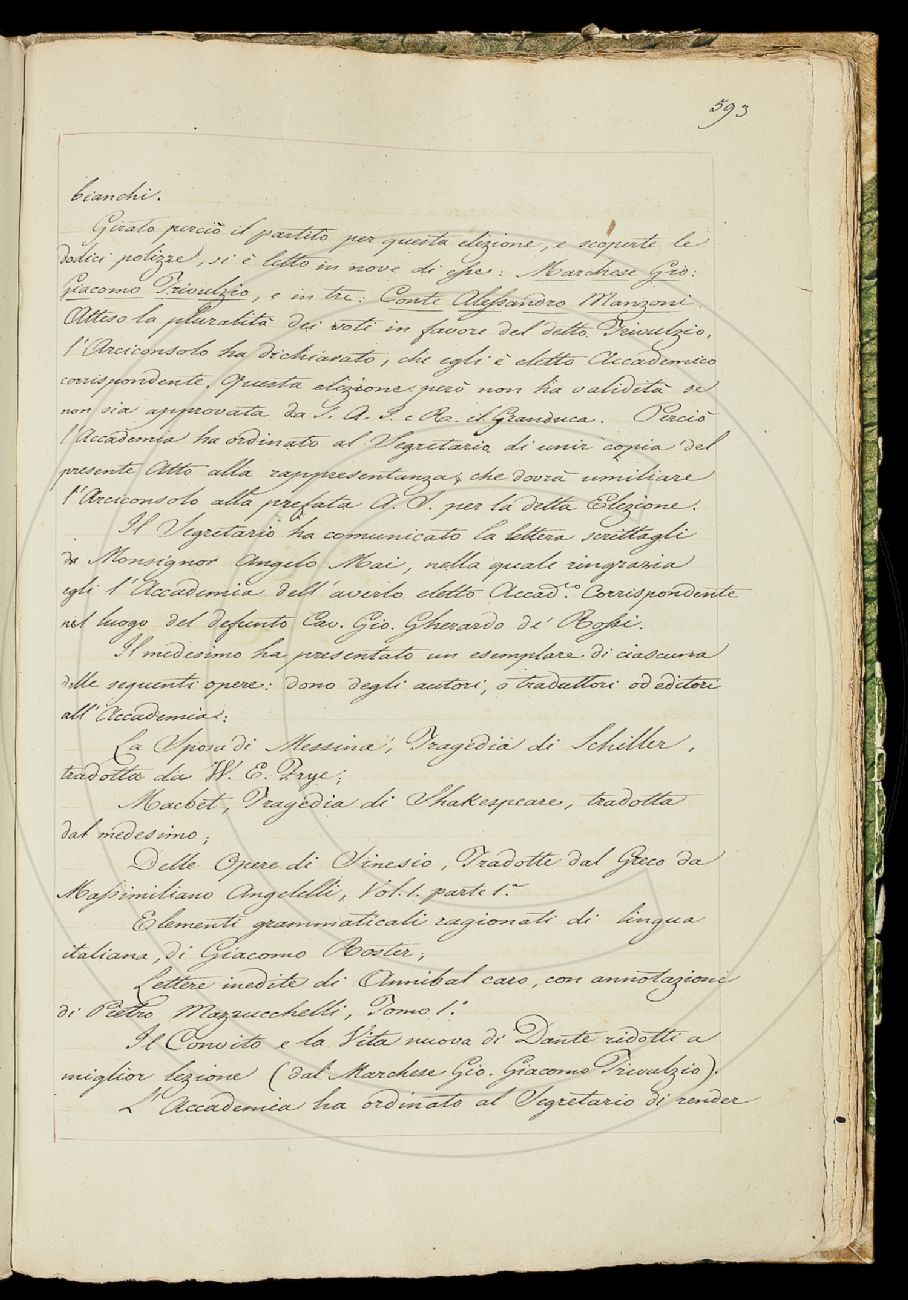 593
bianchi.
Girato perciò il partito per questa elezione, e scoperte le
dodici polizze, si è letto in nove di esse: Marchese Gio:
Giacomo Trivulzio, e in tre: Conte Alessandro Manzoni
Atteso la pluralità dei voti in favore del detto Trivulzio,
l'Arciconsolo ha dichiarato, che egli è eletto Accademico
corrispondente. Questa elezione però non ha validità se
non sia approvata da S. A. I. e R. il Granduca. Perciò
l'Accademia ha ordinato al Segretario di unir copia del
presente Atto alla rappresentanza, che dovrà umiliare
l'Arciconsolo alla prefata A. S. per la detta Elezione.
Il Segretario ha comunicato la lettera scrittagli
da Monsignor Angelo Mai, nella quale ringrazia
egli l'Accademia dell'averlo eletto Accad.co Corrispondente
nel luogo del defunto Cav. Gio. Gherardo de' Rossi.
Il medesimo ha presentato un esemplare di ciascuna
delle seguenti opere: dono degli autori, o traduttori od editori
all'Accademia:
La Sposa di Messina, Tragedia di Schiller,
tradotta da W. E. Frye;
Macbet, Tragedia di Shakespeare, tradotta
dal medesimo;
Delle Opere di Sinesio, Tradotte dal Greco da
Massimiliano Angelelli, Vol. 1. parte 1.a
Elementi grammaticali ragionati di lingua
italiana, di Giacomo Roster;
Lettere inedite di Annibal caro, con annotazioni
di Pietro Mazzucchelli, Tomo 1.o
Il Convito e la Vita nuova di Dante ridotti a
miglior lezione (dal Marchese Gio. Giacomo Trivulzio).
L'Accademia ha ordinato al Segretario di render